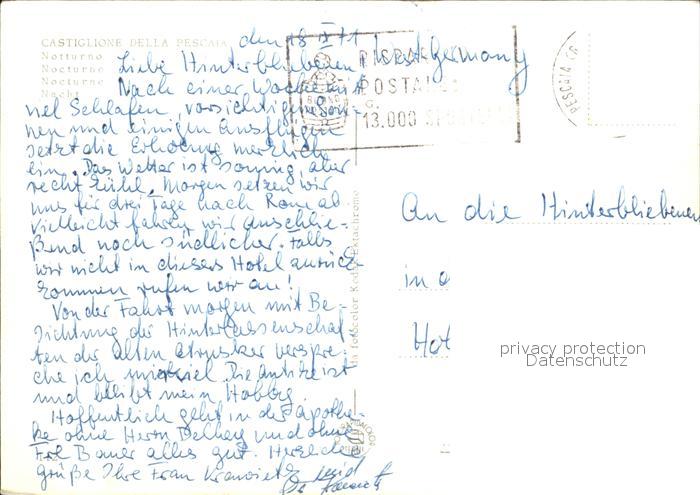 CASTIGLIONE DELLA PESCAIA
Notturno
Nocturne
Nocturne
Nacht
den 18. IX 71
Westgermany
Liebe Hinterbliebenen!
Nach einer Woche mit
viel Schlafen, vorsichtigem Son-
nen und einigen Ausflügen
setzt die Erholung merklich
ein. Das Wetter ist sonnig, aber
recht kühl. Morgen setzen wir
uns für drei Tage nach Rom ab
vielleicht fahren wir anschlie-
ßend noch südlicher. Falls
wir nicht in dieses Hotel zurück-
kommen rufen wir an!
Von der Fahrt morgen mit Be-
sichtung der Hinterlassenschaf-
ten der alten Etrusker verspre-
che ich mir viel. Die Antike ist
und bleibt mein Hobby.
Hoffentlich geht in der Apothe-
ke ohne Herrn und ohne
Frl Bauer alles gut. Herzliche
Grüße Ihre Frau
POSTALI
13.000
PESCAIA (GR
fotocolor Kodak Ektachrome
An die Hinterbliebenen
in d
Hot
privacy protection
Datenschutz